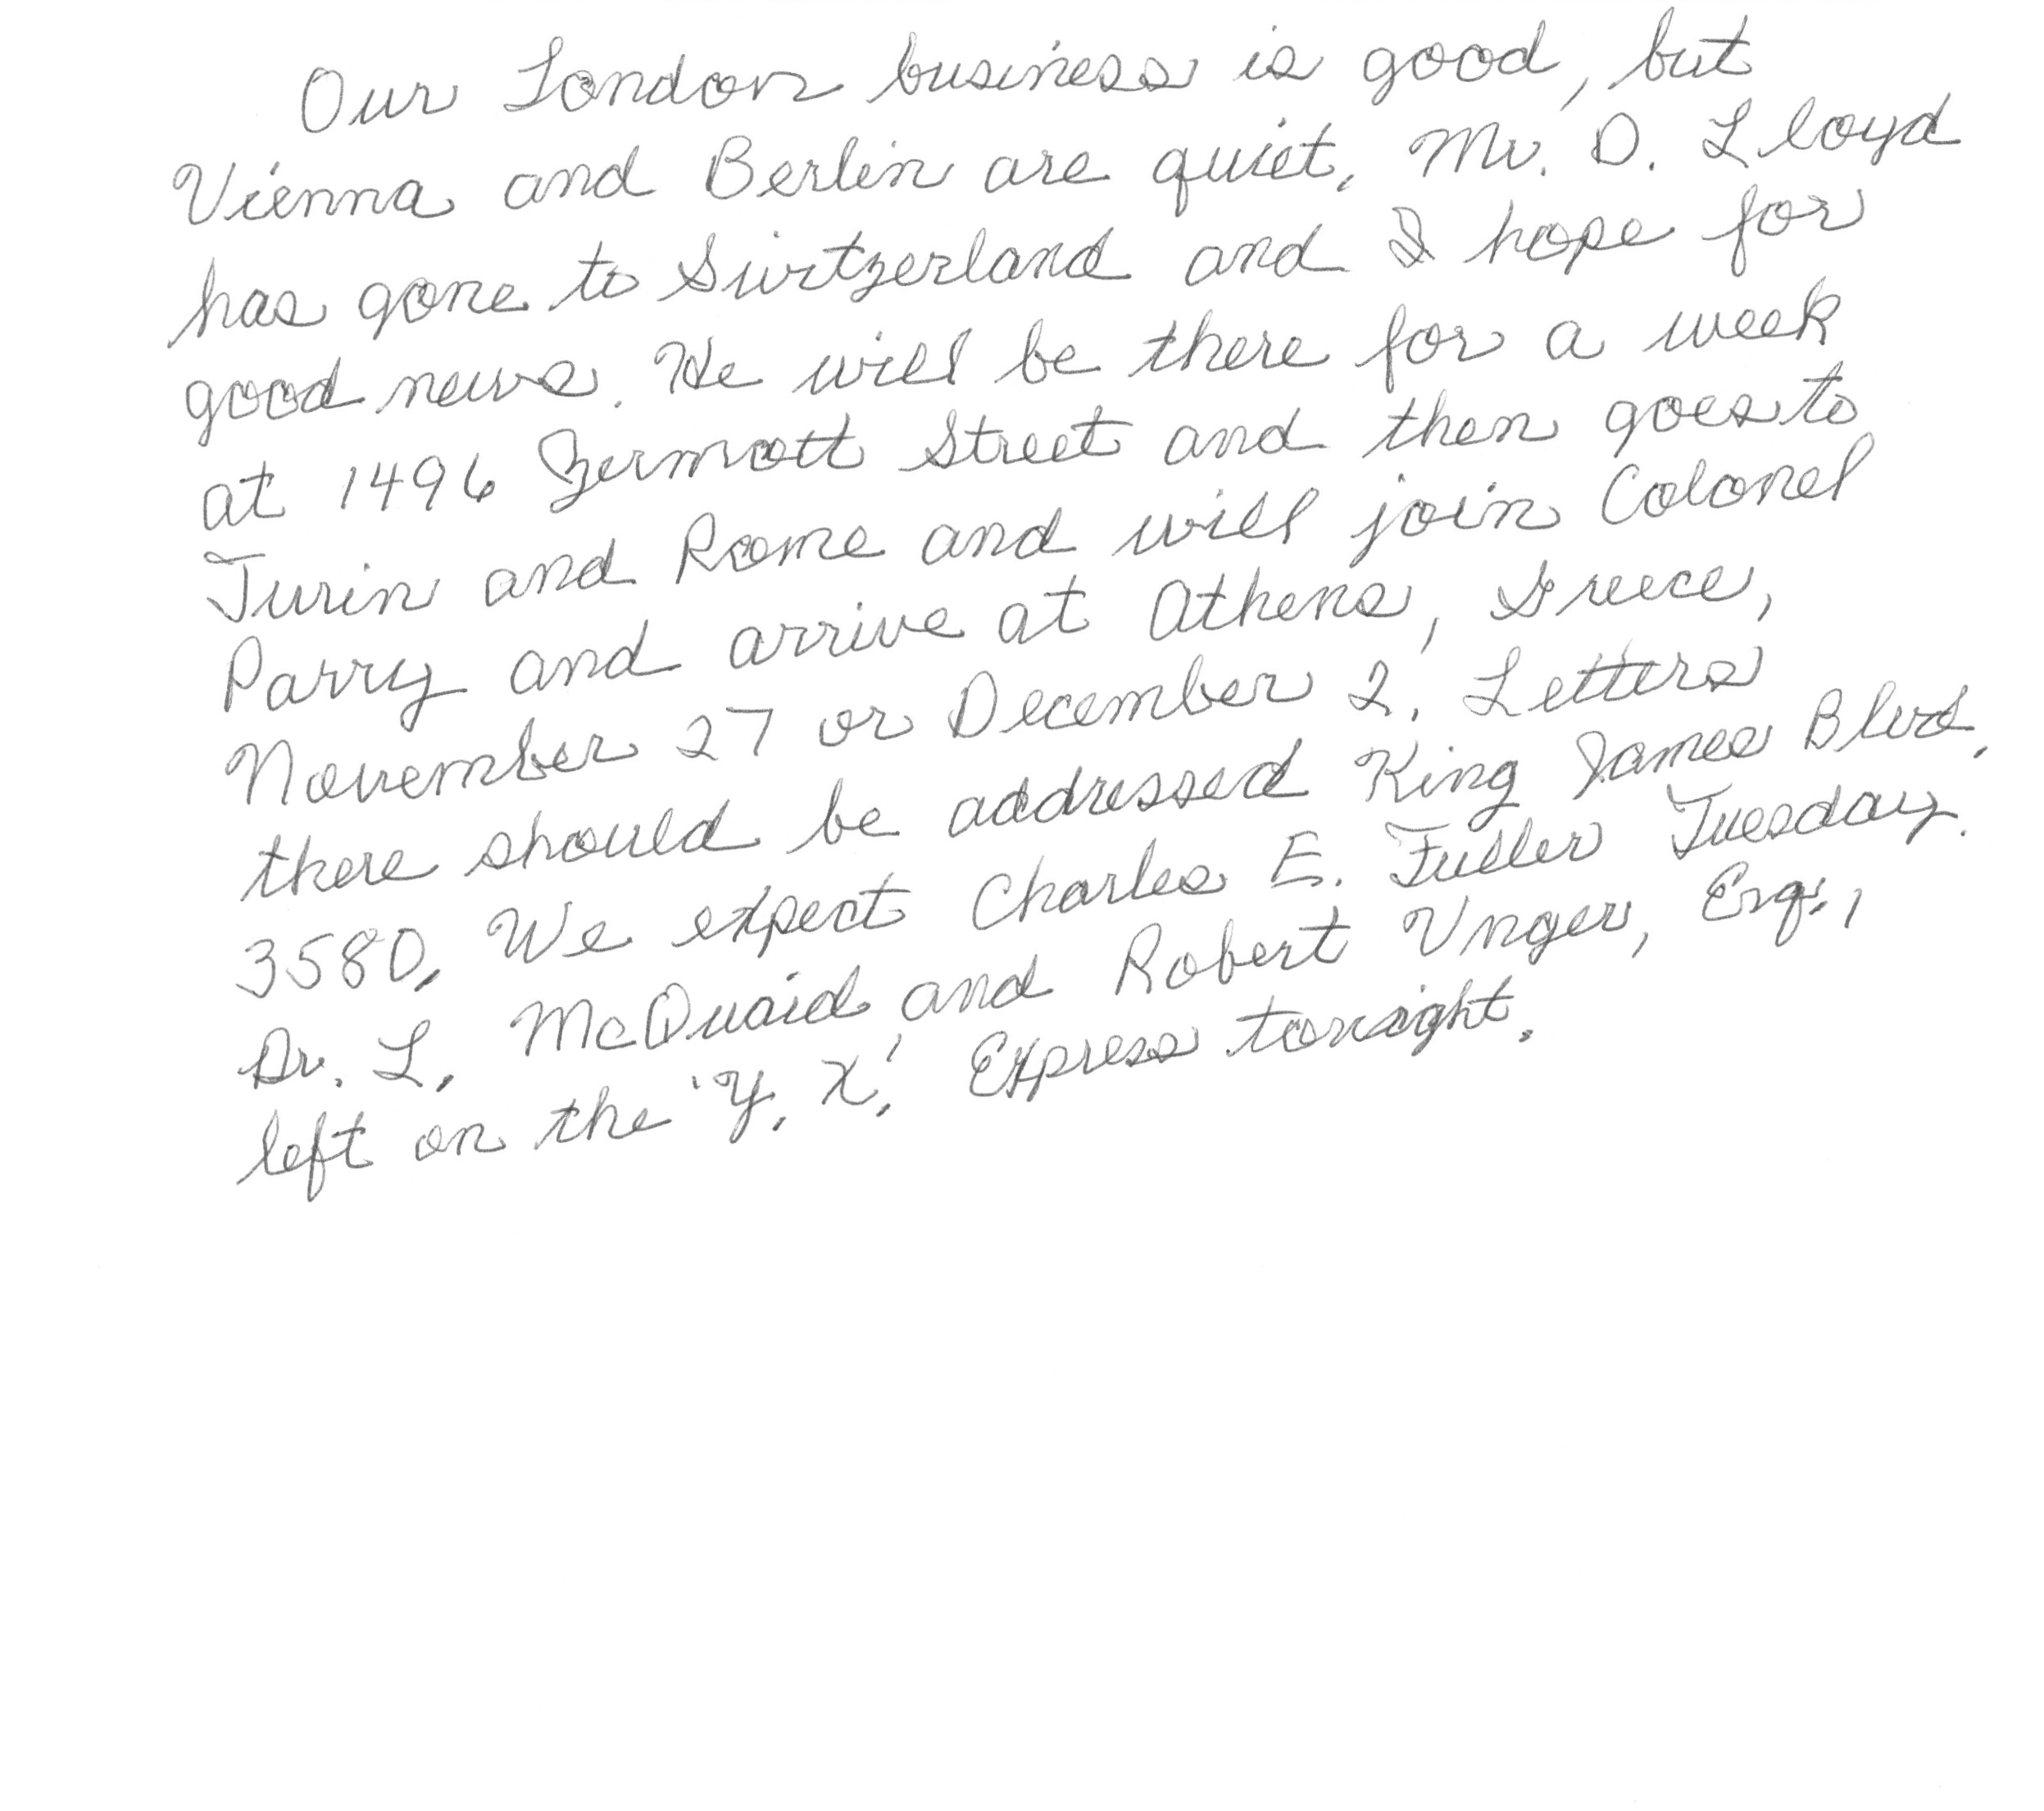 Our London business is good, but
Vienna and Berlin are quiet. Mr. D. Lloyd
has gone to Switzerland and I hope for
good news. He will be there for a week
at 1496 Zermott Street and then goes to
Turin and Rome and will join Colonel
Parry and arrive at Athens, Greece,
November 27 or December 2. Letters
there should be addressed King James Blvd.
3580. We expect Charles E. Fuller Tuesday.
Dr. L. McQuaid and Robert Unger, Esq.,
left on the 'Y. X.' Express tonight.